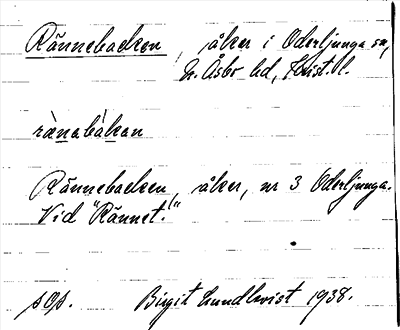 Rännebacken, åker i Oderljunga sn,
N. Åsbo hd, Krist. l.
rànabàkan
Rännebacken, åker, nr 3 Oderljunga.
Vid "Rännet."
sgs. Birgit Lundkvist 1938.